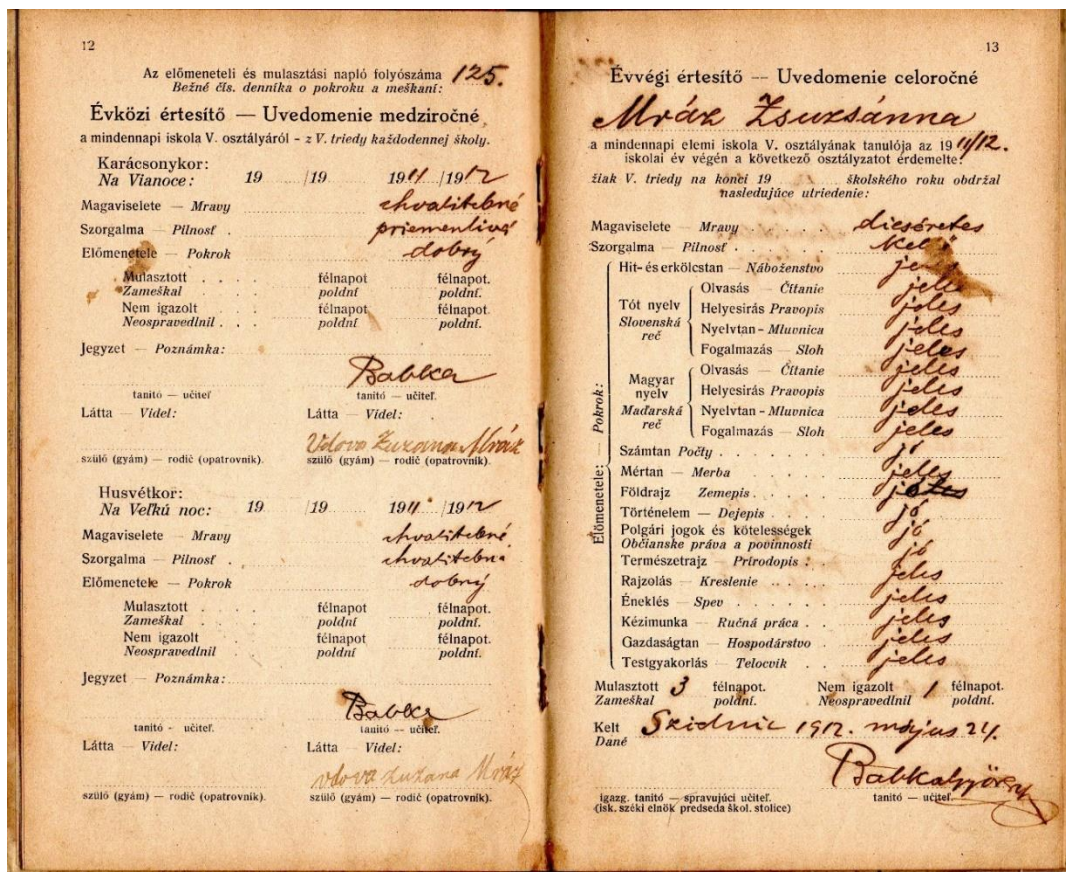 12
Az előmeneteli és mulasztási napló folyószáma 125.
Bežné čís. denníka o pokroku a meškaní:
Évközi értesítő — Uvedomenie medziročné
a mindennapi iskola V. osztályáról - z V. triedy každodennej školy.
Karácsonykor:
Na Vianoce: 19 /19 1911 /1912
Magaviselete — Mravy chvalitebné
Szorgalma — Pilnosť priemenlivá
Előmenetele — Pokrok dobrý
Mulasztott félnapot. félnapot.
Zameškal poldní poldní.
Nem igazolt félnapot félnapot.
Neospravedlnil poldní poldní.
Jegyzet — Poznámka:
Babka
tanitó — učiteľ tanitó — učiteľ.
Látta — Videl: Látta — Videl:
Vdova Zuzana Mráz
szülő (gyám) — rodič (opatrovník). szülő (gyám) — rodič (opatrovník).
Husvétkor:
Na Veľkú noc: 19 /19 1911 /1912
Magaviselete — Mravy chvalitebné
Szorgalma — Pilnosť chvalitebná
Előmenetele — Pokrok dobrý
Mulasztott félnapot félnapot.
Zameškal poldní poldní.
Nem igazolt félnapot félnapot.
Neospravedlnil poldní poldní.
Jegyzet — Poznámka:
Babka
tanitó - učiteľ. tanitó — učiteľ.
Látta — Videl: Látta — Videl:
vdova zuzana Mráz
szülő (gyám) — rodič (opatrovník). szülő (gyám) — rodič (opatrovník).
13
Évvégi értesítő — Uvedomenie celoročné
Mráz Zsuzsánna
a mindennapi elemi iskola V. osztályának tanulója az 1911/12.
iskolai év végén a következő osztályzatot érdemelte:
žiak V. triedy na konci 19 školského roku obdržal
nasledujúce utriedenie:
Magaviselete — Mravy dicséretes
Szorgalma — Pilnosť kellő
Előmenetele: — Pokrok:
Hit- és erkölcstan — Náboženstvo jeles
Tót nyelv
Slovenská reč
Olvasás — Čítanie jeles
Helyesirás Pravopis jeles
Nyelvtan - Mluvnica jeles
Fogalmazás — Sloh jeles
Magyar nyelv
Maďarská reč
Olvasás — Čítanie jeles
Helyesirás Pravopis jeles
Nyelvtan - Mluvnica jeles
Fogalmazás — Sloh jeles
Számtan Počty jó
Mértan — Merba jeles
Földrajz Zemepis
Történelem — Dejepis jó
Polgári jogok és kötelességek jó
Občianske práva a povinnosti
Természetrajz — Prírodopis jó
Rajzolás — Kreslenie jeles
Éneklés — Spev jeles
Kézimunka — Ručná práca jeles
Gazdaságtan — Hospodárstvo jeles
Testgyakorlás — Telocvik jeles
Mulasztott 3 félnapot. Nem igazolt 1 félnapot.
Zameškal poldní. Neospravedlnil poldní.
Kelt 1912. május 24.
Dané
Babka György
igazg. tanitó — spravujúci učiteľ. tanitó — učiteľ.
(isk. széki elnök predseda škol. stolice)